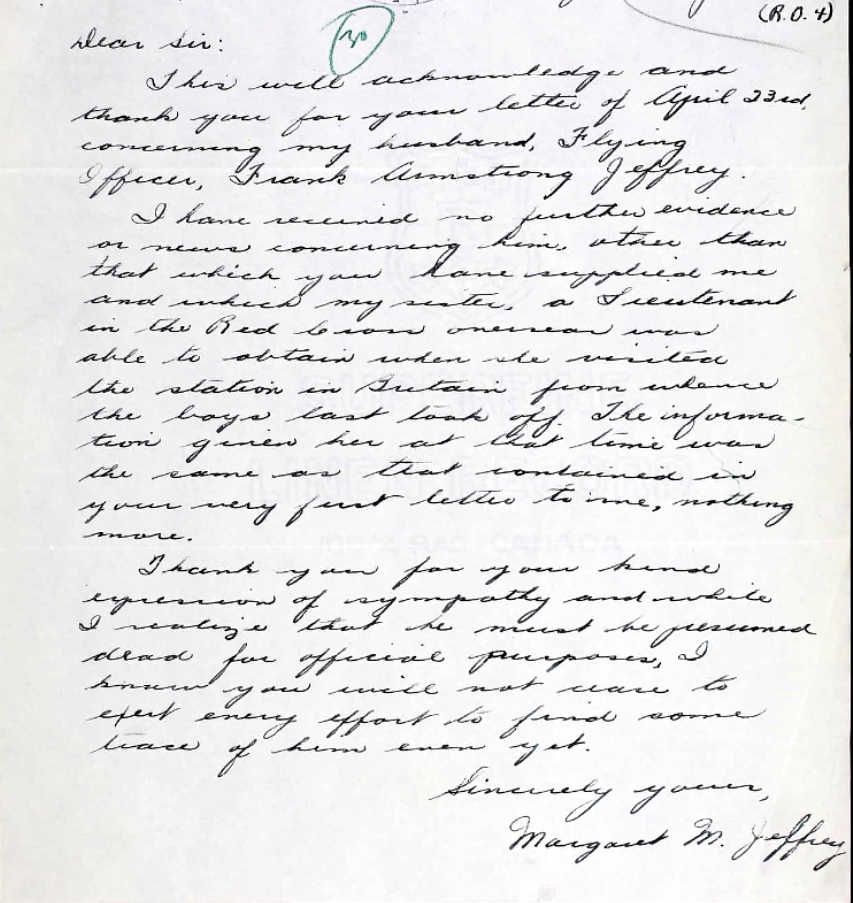 (R.O. 4)
30
Dear Sir:
This will acknowledge and
thank you for your letter of April 23rd,
concerning my husband, Flying
Officer, Frank Armstrong Jeffrey.
I have received no further evidence
or news concerning him, other than
that which you have supplied me
and which my sister, a Lieutenant
in the Red Cross overseas was
able to obtain when she visited
the station in Britain from whence
the boys last took off. The informa-
tion given her at that time was
the same as that contained in
your very first letter to me, nothing
more.
Thank you for your kind
expression of sympathy and while
I realize that he must be presumed
dead for official purposes, I
know you will not cease to
exert every effort to find some
trace of him even yet.
Sincerely yours,
Margaret M. Jeffrey